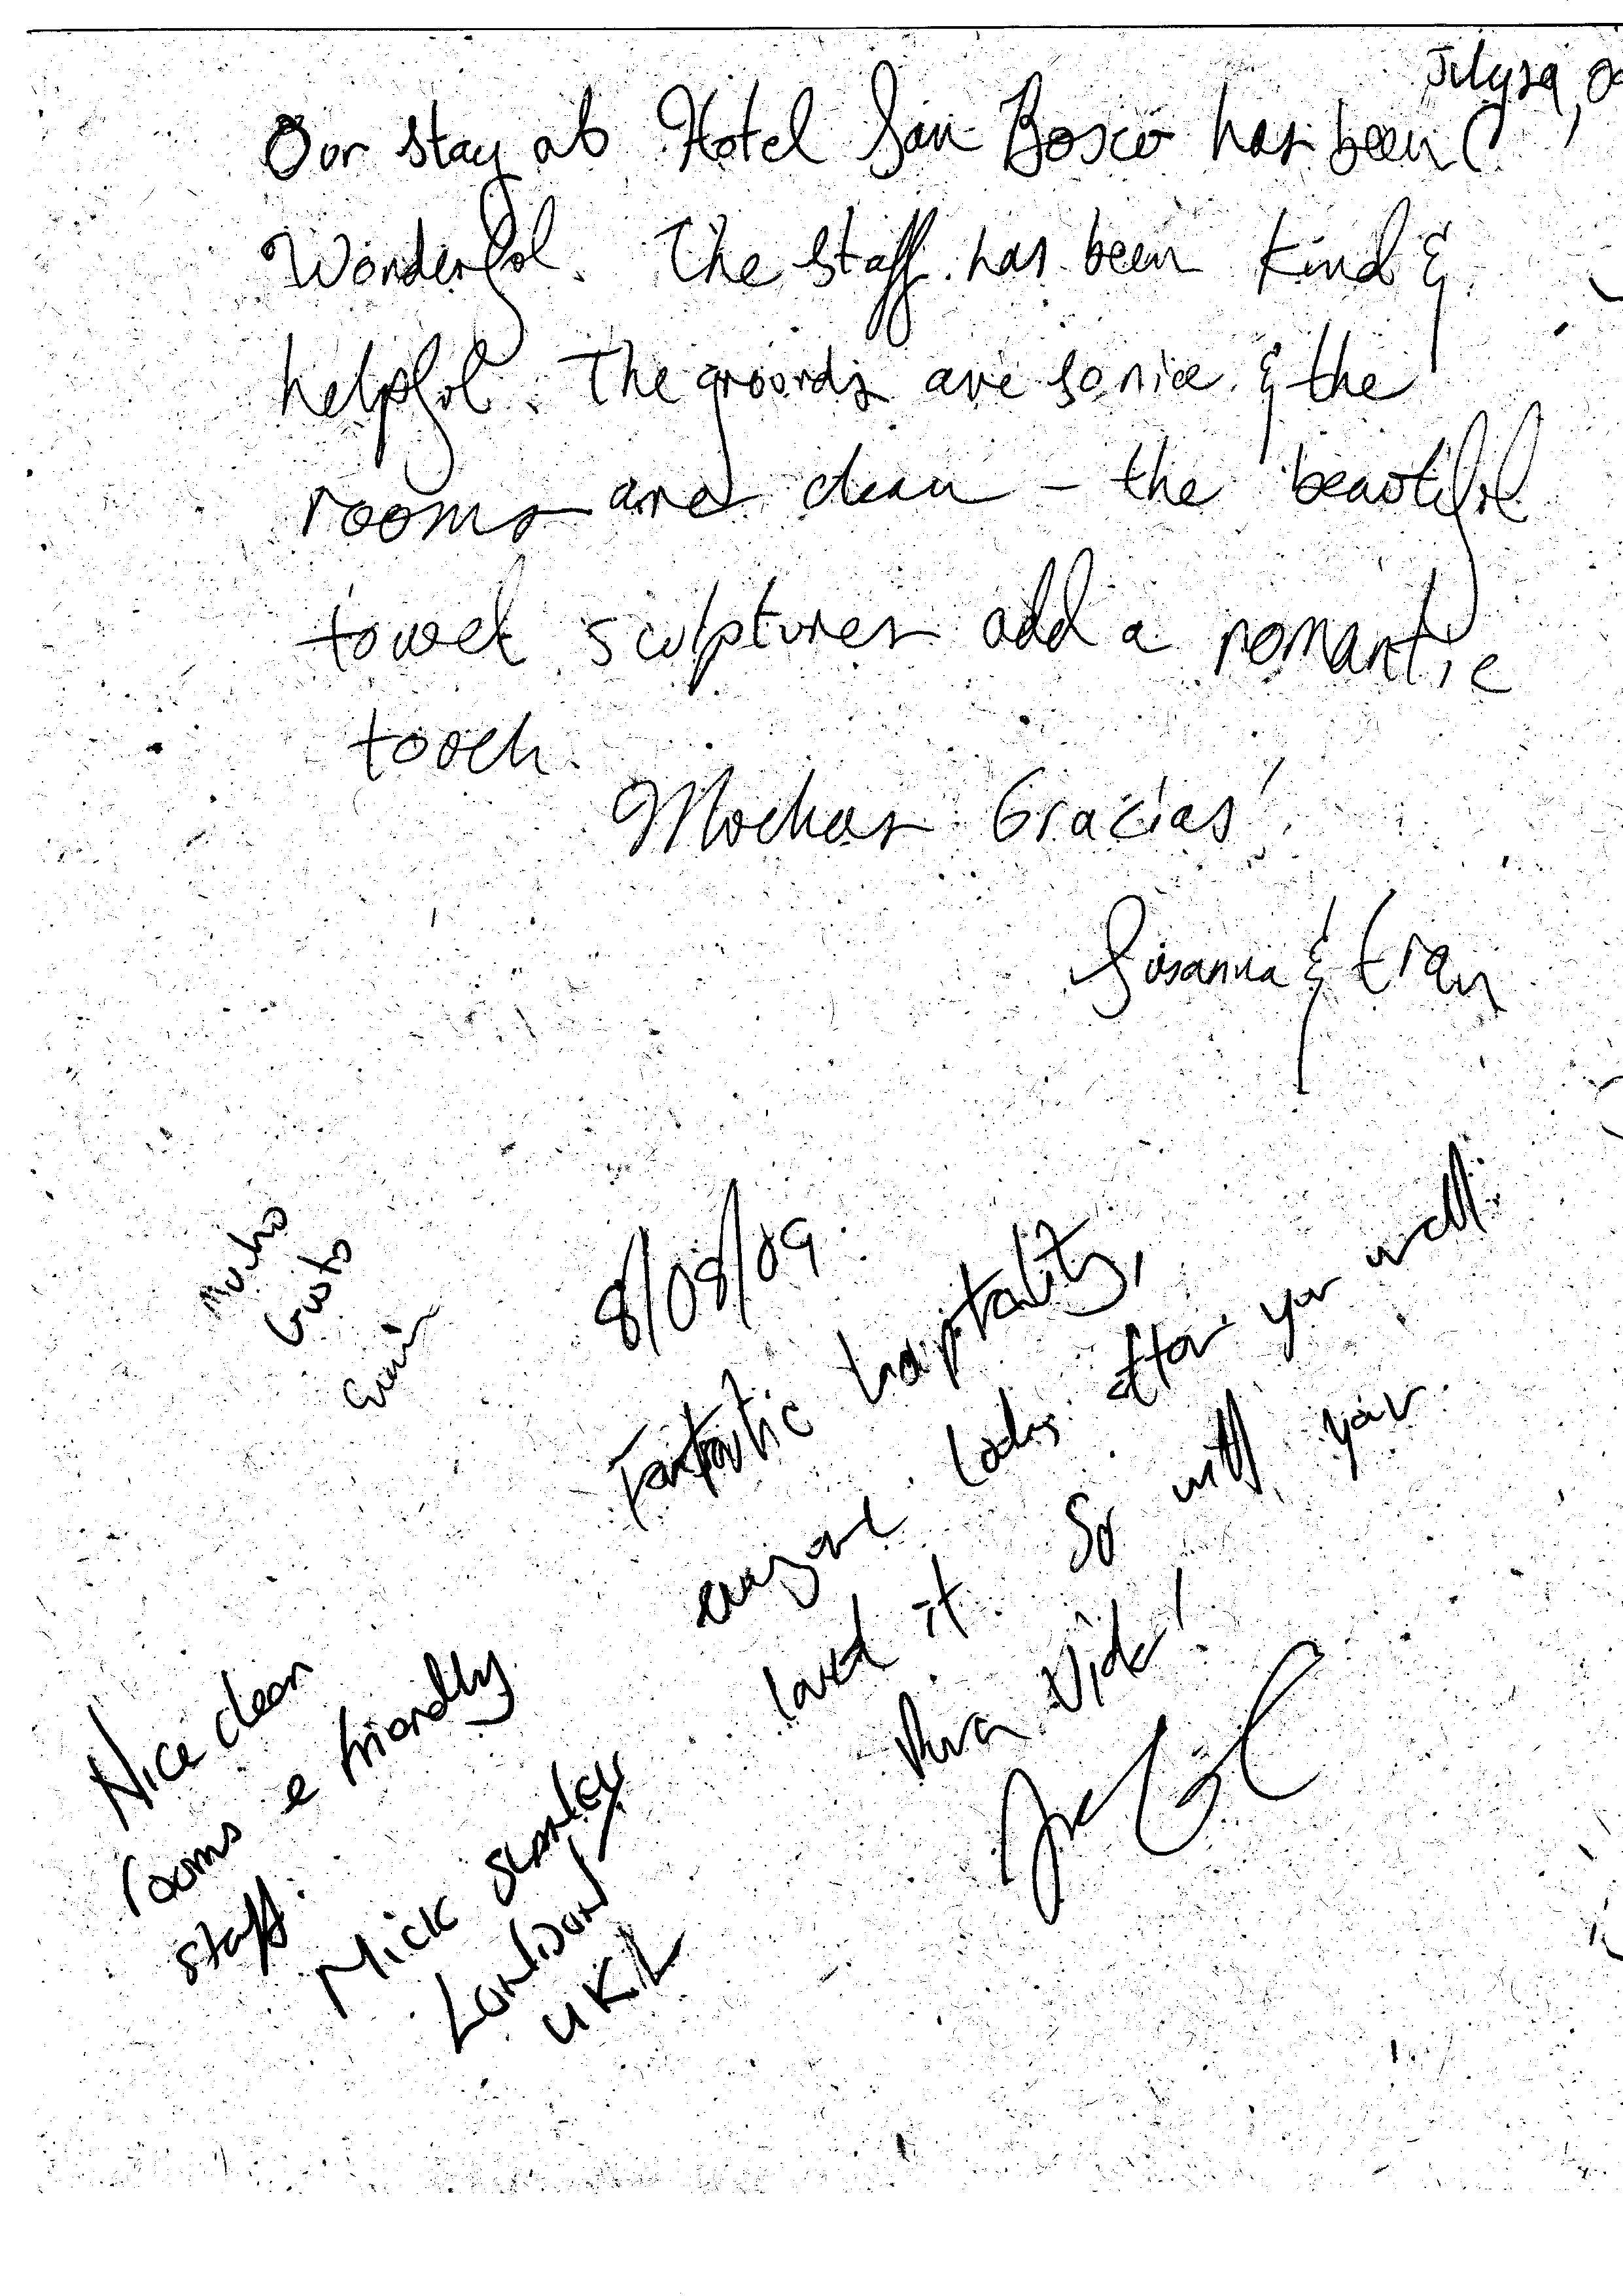 Our stay at Hotel San Bosco has been
Wonderful. The staff has been kind &
helpful. The grounds are so nice & the
rooms are clean – the beautiful
towel sculptures add a romantic
touch.
Muchas Gracias!
Susanna & Fran
Mucho
Gusto
8/08/09
Fantastic hospitality,
everyone looks after you well
loved it. So will you
Pura Vida!
Nice clean
rooms e friendly
staff.
Mick Stanley
London
UK